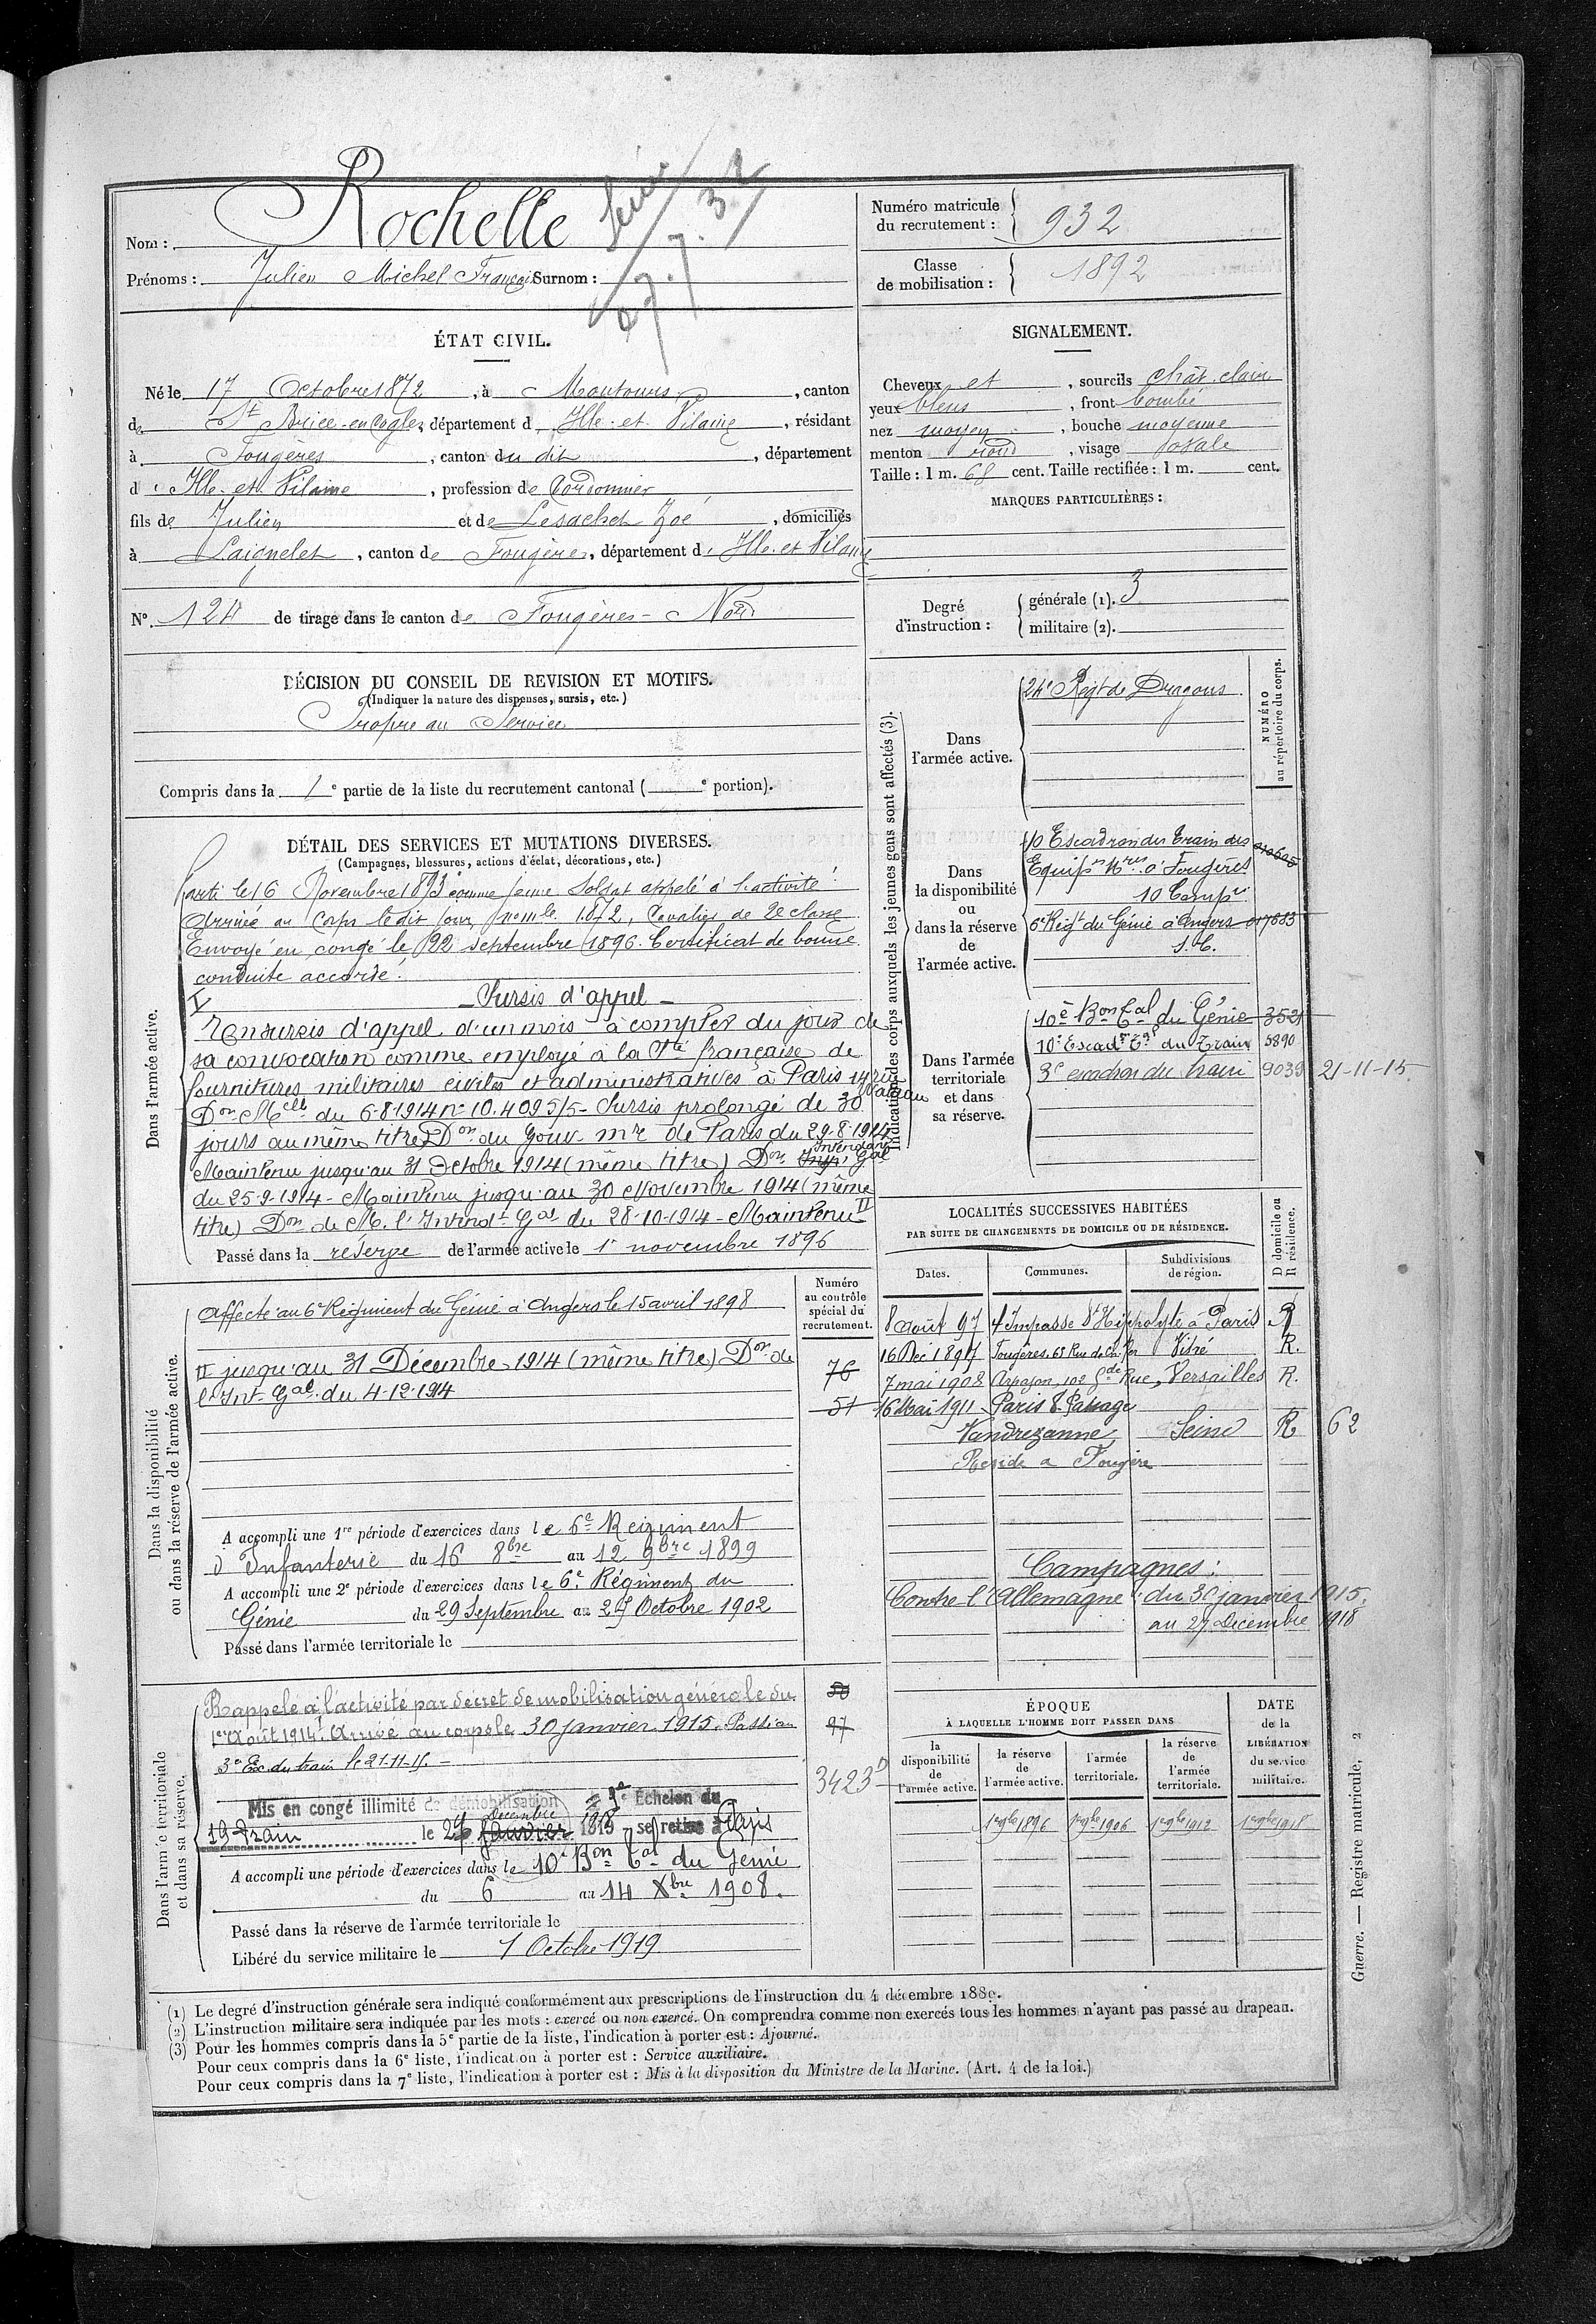 Nom : Rochelle
27.7.32
Prénoms : Julien Michel François Surnom :
Numéro matricule du recrutement : 932
Classe de mobilisation : 1892
ÉTAT CIVIL.
Né le 17 Octobre 1872, à Montours, canton
de St Brice-en-Cogles, département d'Ille-et-Vilaine, résidant
à Fougères, canton du dit, département
d'Ille-et-Vilaine, profession de Cordonnier
fils de Julien et de Lesachet Zoé, domiciliés
à Laignelet, canton de Fougères, département d'Ille-et-Vilaine
N° 124 de tirage dans le canton de Fougères-Nord
SIGNALEMENT.
Cheveux et, sourcils chât. clair
yeux bleus, front bombé
nez moyen, bouche moyenne
menton rond, visage ovale
Taille : 1 m. 68 cent. Taille rectifiée : 1 m. cent.
MARQUES PARTICULIÈRES :
Degré d'instruction : générale (1). 3
militaire (2).
DÉCISION DU CONSEIL DE REVISION ET MOTIFS.
(Indiquer la nature des dispenses, sursis, etc.)
Propre au Service
Compris dans la 1e partie de la liste du recrutement cantonal ( e portion).
DÉTAIL DES SERVICES ET MUTATIONS DIVERSES.
(Campagnes, blessures, actions d'éclat, décorations, etc.)
Dans l'armée active.
Parti le 16 Novembre 1893 comme jeune Soldat appelé à l'activité.
Arrivé au Corps le dit jour, nomle 1872, Cavalier de 2e classe
Envoyé en congé le 22 septembre 1896. Certificat de bonne
conduite accordé.
I
- Sursis d'appel -
En sursis d'appel d'un mois à compter du jour de
sa convocation comme employé à la Cté française de
fournitures militaires civiles et administratives à Paris
Don Mell du 6-8-1914 n° 10.409 5/5 - Sursis prolongé de 30
jours au même titre Don du Gouv. mre de Paris du 29-8-1914
Maintenu jusqu'au 31 Octobre 1914 (même titre) Don Intendant Gal
du 25-9-1914 - Maintenu jusqu'au 30 Novembre 1914 (même
titre) Don de M. l'Intendt Gal du 28-10-1914 - Maintenu II
Passé dans la réserve de l'armée active le 1er novembre 1896
Dans la disponibilité ou dans la réserve de l'armée active.
Affecté au 6e Régiment du Génie à Angers le 15 avril 1898
II jusqu'au 31 Décembre 1914 (même titre) Don de
l'Int. Gal. du 4-12-1914
A accompli une 1re période d'exercices dans le 6e Régiment
d'Infanterie du 16 8bre au 12 9bre 1899
A accompli une 2e période d'exercices dans le 6e Régiment du
Génie du 29 Septembre au 27 Octobre 1902
Passé dans l'armée territoriale le
Numéro au contrôle spécial du recrutement.
76
51
Dans l'armée territoriale et dans sa réserve.
Rappelé à l'activité par décret de mobilisation générale du
1er Août 1914. Arrivé au corps le 30 janvier 1915. Passé au
3e Esc. du train le 21-11-15. -
Mis en congé illimité de démobilisation Echelon du
19 Train le 27 Décembre 1918 se retire à Paris
A accompli une période d'exercices dans le 10e Bon Tal du Génie
du 6 au 14 Xbre 1908.
Passé dans la réserve de l'armée territoriale le
Libéré du service militaire le 1 Octobre 1919
97
3423
Indication des corps auxquels les jeunes gens sont affectés (3).
NUMÉRO au répertoire du corps.
Dans l'armée active.
24e Régt de Dragons
Dans la disponibilité ou dans la réserve de l'armée active.
10 Escadron du Train des
Equipes Mres à Fougères
6e Régt du Génie à Angers 017683
S. C.
Dans l'armée territoriale et dans sa réserve.
10e Bon Tal du Génie 3521
10e Escadn Tal du Train 5890
3e escadron du train 9039 21-11-15
LOCALITÉS SUCCESSIVES HABITÉES
PAR SUITE DE CHANGEMENTS DE DOMICILE OU DE RÉSIDENCE.
Dates. Communes. Subdivisions de région. D domicile ou R résidence.
8 août 97 4 Impasse St Hippolyte à Paris R
16 Déc 1897 Fougères, 63 Rue de Vitré R.
7 mai 1908 Arpajon, 102 Gde Rue, Versailles R.
16 Mai 1911 Paris 8 Passage
Vandrezanne Seine R 62
Réside à Fougère
Campagnes :
Contre l'Allemagne : du 30 janvier 1915.
au 27 Décembre 1918
ÉPOQUE
À LAQUELLE L'HOMME DOIT PASSER DANS
la disponibilité de l'armée active. la réserve de l'armée active. l'armée territoriale. la réserve de l'armée territoriale.
DATE de la LIBÉRATION du service militaire.
1er 9bre 1896 1er 9bre 1906 1er 9bre 1912 1er 9bre 1918
Guerre. — Registre matricule. 2
(1) Le degré d'instruction générale sera indiqué conformément aux prescriptions de l'instruction du 4 décembre 1889.
(2) L'instruction militaire sera indiquée par les mots : exercé ou non exercé. On comprendra comme non exercés tous les hommes n'ayant pas passé au drapeau.
(3) Pour les hommes compris dans la 5e partie de la liste, l'indication à porter est : Ajourné.
Pour ceux compris dans la 6e liste, l'indication à porter est : Service auxiliaire.
Pour ceux compris dans la 7e liste, l'indication à porter est : Mis à la disposition du Ministre de la Marine. (Art. 4 de la loi.)